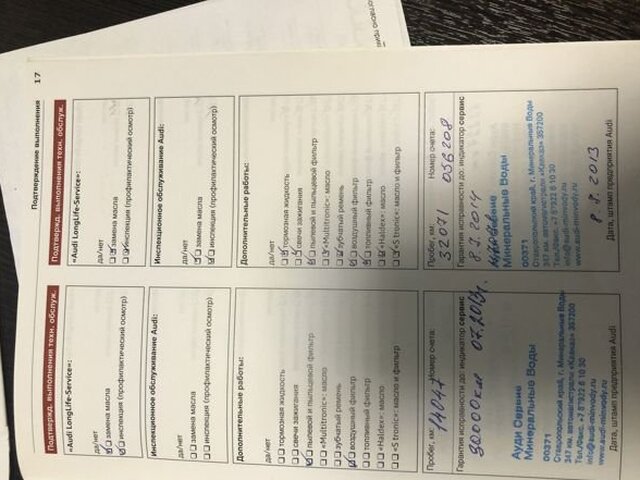 Подтверждение выполнения 17
Подтвержд. выполнения техн. обслуж.
«Audi LongLife-Service»:
да/нет
замена масла
инспекция (профилактический осмотр)
Инспекционное обслуживание Audi:
да/нет
замена масла
инспекция (профилактический осмотр)
Дополнительные работы:
да/нет
тормозная жидкость
свечи зажигания
пылевой и пыльцевой фильтр
«Multitronic»: масло
зубчатый ремень
воздушный фильтр
топливный фильтр
«Haldex»: масло
«S tronic»: масло и фильтр
Пробег, км: Номер счета:
14047
Гарантия исправности до: индикатор сервис
30000км 07.2013г.
Ауди Сервис
Минеральные Воды
00371
Ставропольский край, г. Минеральные Воды
347 км. автомагистрали «Кавказ» 357200
Тел./Факс. +7 87922 6 10 30
info@audi-minvody.ru
www.audi-minvody.ru
Дата, штамп предприятия Audi
Подтвержд. выполнения техн. обслуж.
«Audi LongLife-Service»:
да/нет
замена масла
инспекция (профилактический осмотр)
Инспекционное обслуживание Audi:
да/нет
замена масла
инспекция (профилактический осмотр)
Дополнительные работы:
да/нет
тормозная жидкость
свечи зажигания
пылевой и пыльцевой фильтр
«Multitronic»: масло
зубчатый ремень
воздушный фильтр
топливный фильтр
«Haldex»: масло
«S tronic»: масло и фильтр
Пробег, км: Номер счета:
32071 036208
Гарантия исправности до: индикатор сервис
8.3.2014
Минеральные Воды
00371
Ставропольский край, г. Минеральные Воды
347 км. автомагистрали «Кавказ» 357200
Тел./Факс. +7 87922 6 10 30
info@audi-minvody.ru
www.audi-minvody.ru
8.8.2013
Дата, штамп предприятия Audi